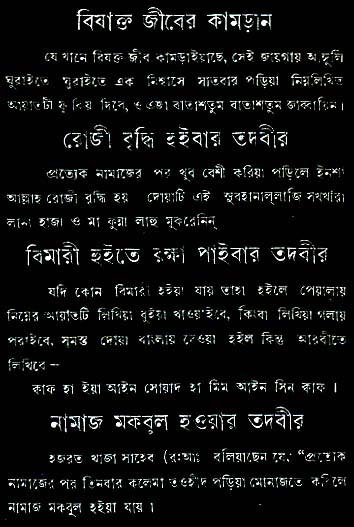 বিষাক্ত জীবের কামড়ান
যে খানে বিষাক্ত জীব কামড়াইয়াছে, সেই জায়গায় আঙ্গুলি
ঘুরাইতে ঘুরাইতে এক নিশ্বাসে সাতবার পড়িয়া নিম্নলিখিত
আয়াতটী ফু দিয়া দিবে, ও এজা বাতাশতুম বাতাশতুম জাব্বারিন।
রোজী বৃদ্ধি হইবার তদবীর
প্রত্যেক নামাজের পর খুব বেশী করিয়া পড়িলে ইনশা
আল্লাহ রোজী বৃদ্ধি হয় দোয়াটি এই সুবহানাল্লাজি সখখারা
লানা হাজা ও মা কুন্না লাহু মুকরেনিন্
বিমারী হইতে রক্ষা পাইবার তদবীর
যদি কোন বিমারী হইয়া যায় তাহা হইলে পেয়ালায়
নিম্নের আয়াতটি লিখিয়া ধুইয়া খাওয়াইবে, কিংবা লিখিয়া গলায়
পরাইবে, সমস্ত দোয়া বাংলায় দেওয়া হইল কিন্তু আরবীতে
লিখিবে —
কাফ হা ইয়া আইন সোয়াদ হা মিম আইন সিন কাফ।
নামাজ মকবুল হওয়ার তদবীর
হজরত খাজা সাহেব (রঃআঃ বলিয়াছেন যে, “প্রত্যেক
নামাজের পর তিনবার কলেমা তওহীদ পড়িয়া মোনাজাত করিলে
নামাজ মকবুল হইয়া যায়।